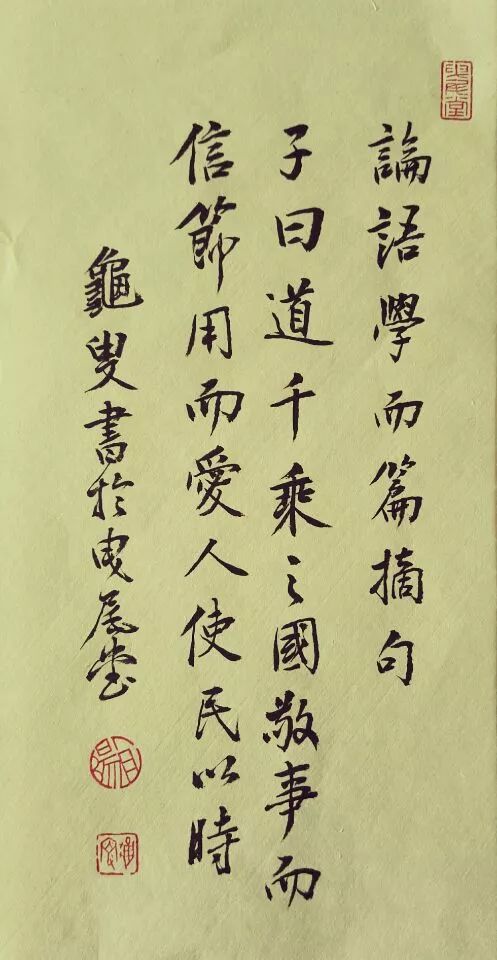 論語學而篇摘句
子曰道千乘之國敬事而
信節用而愛人使民以時
龜叟書於曳尾堂